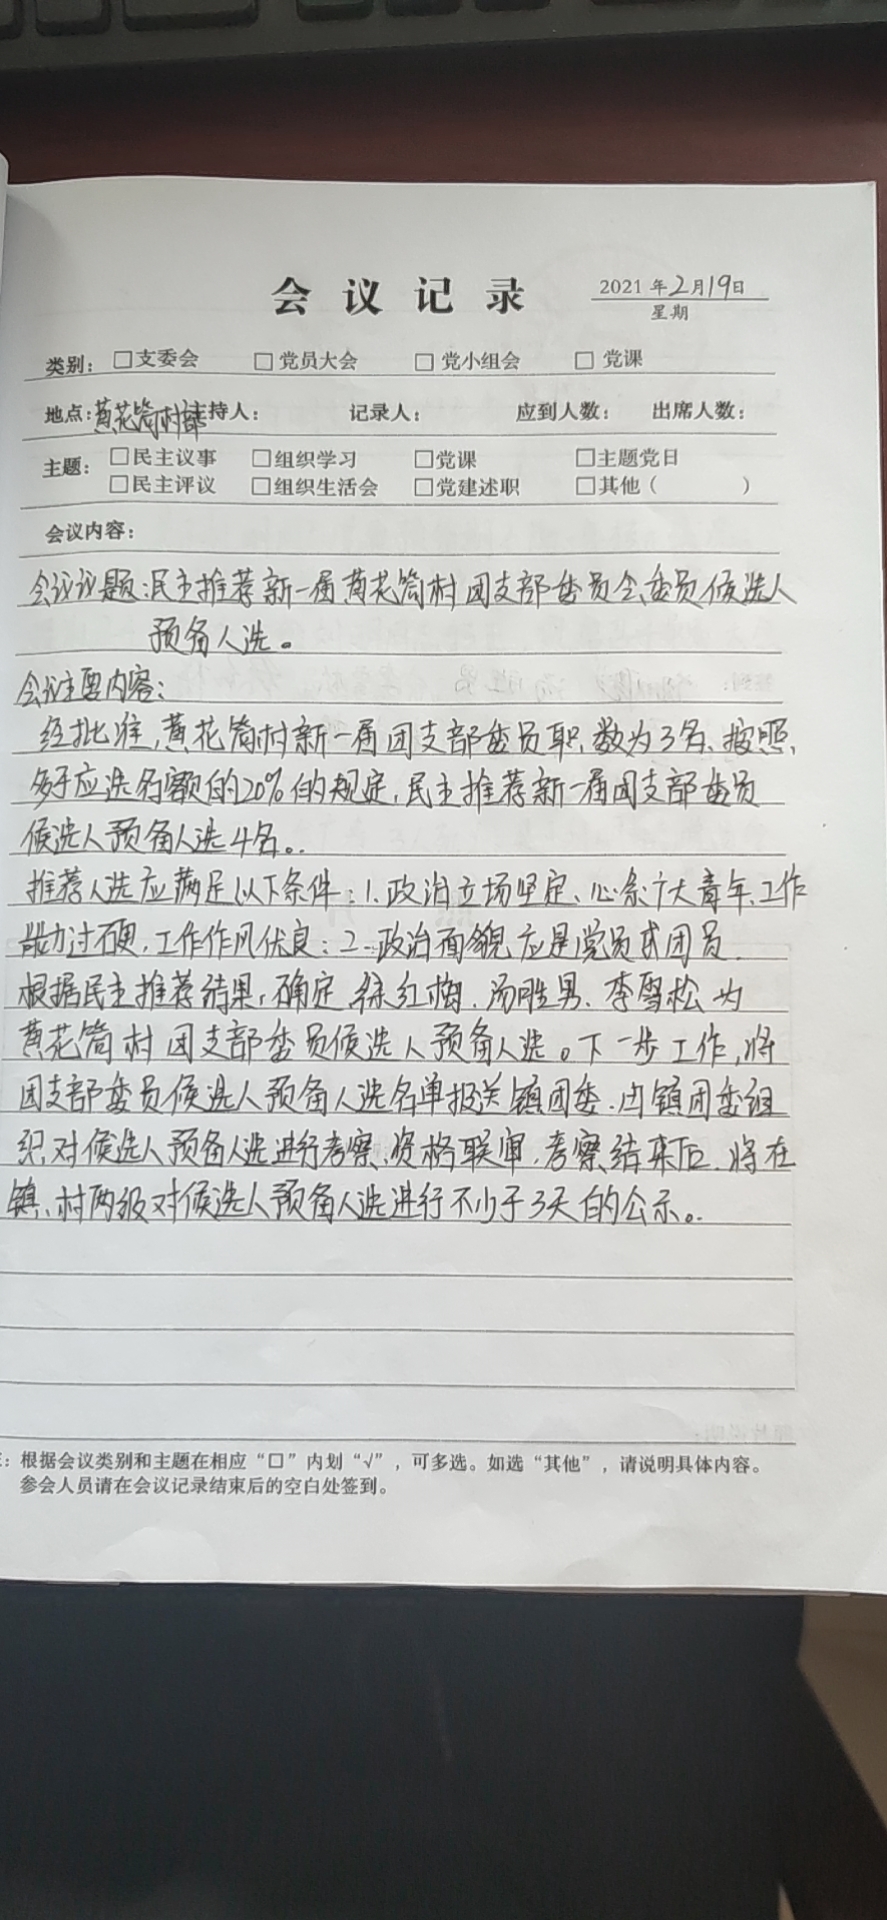 会议记录
2021年2月19日
星期
类别：□支委会 □党员大会 □党小组会 □党课
地点：黄花筒村部 主持人： 记录人： 应到人数： 出席人数：
主题：□民主议事 □组织学习 □党课 □主题党日
□民主评议 □组织生活会 □党建述职 □其他（ ）
会议内容：
会议议题：民主推荐新一届黄花筒村团支部委员会委员候选人
预备人选。
会议主要内容：
经批准，黄花筒村新一届团支部委员职数为3名、按照
多于应选名额的20%的规定，民主推荐新一届团支部委员
候选人预备人选4名。
推荐人选应满足以下条件：1.政治立场坚定、心系广大青年、工作
能力过硬，工作作风优良；2.政治面貌应是党员或团员
根据民主推荐结果，确定徐红梅、汤胜男、李雪松为
黄花筒村团支部委员候选人预备人选。下一步工作，将
团支部委员候选人预备人选名单报送镇团委，由镇团委组
织对候选人预备人选进行考察、资格联审，考察结束后，将在
镇、村两级对候选人预备人选进行不少于3天的公示。
：根据会议类别和主题在相应“□”内划“√”，可多选。如选“其他”，请说明具体内容。
参会人员请在会议记录结束后的空白处签到。